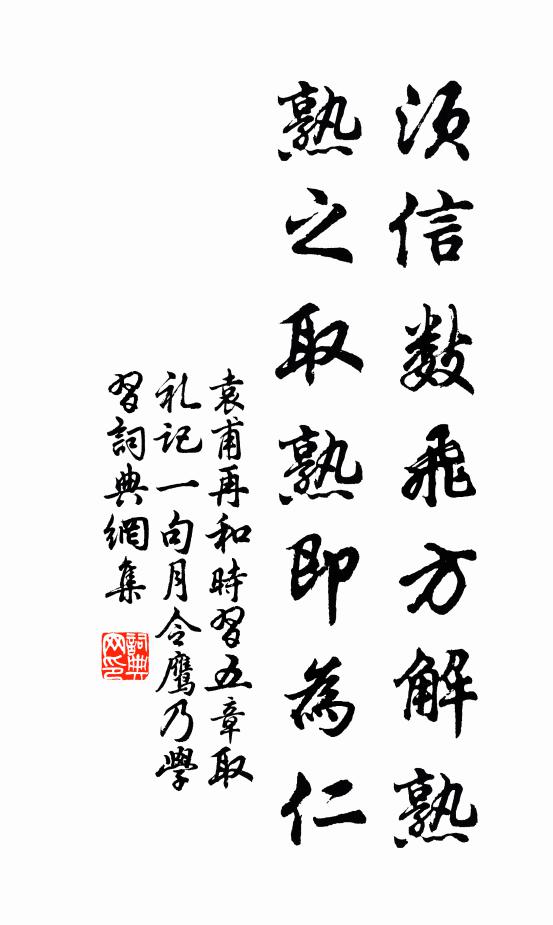 須信數飛方解熟
熟之取熟即為仁
袁甫再和時習五章取
礼記一句月令鷹乃學
習詞典網集
詞典網印